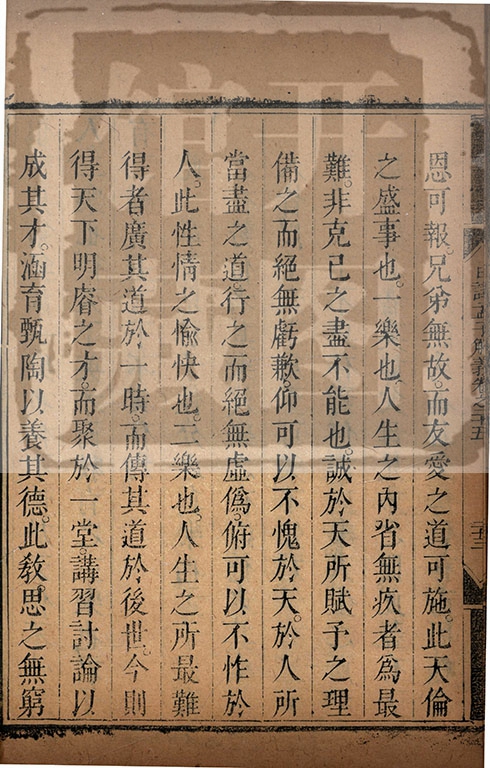 恩可報。兄弟無故。而友愛之道可施。此天倫
之盛事也。一樂也。人生之內省無疚者爲最
難。非克己之盡不能也。誠於天所賦予之理
備之而絕無虧歉。仰可以不愧於天。於人所
當盡之道。行之而絕無虛僞。俯可以不怍於
人。此性情之愉快也。二樂也。人生之所最難
得者廣其道於一時。而傳其道於後世。今則
得天下明睿之才。而聚於一堂。講習討論以
成其才。涵育甄陶以養其德。此敎思之無窮